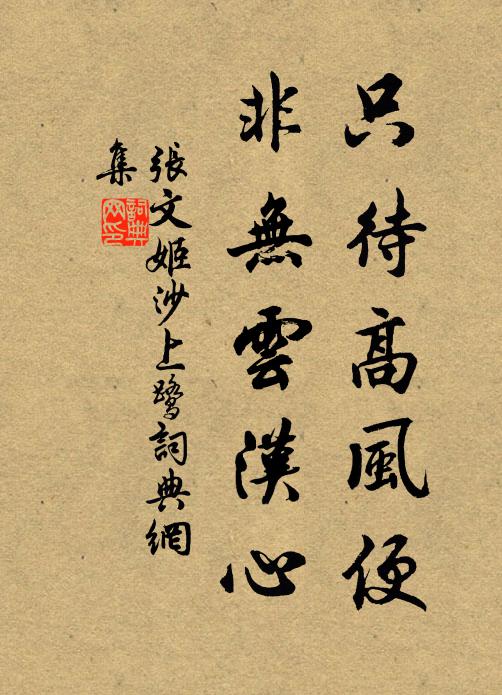 只待高風便
非無雲漢心
張文姬沙上鷺詞典網
集
詞典
网印